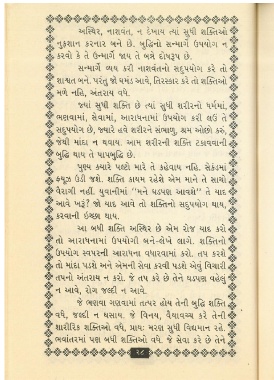 અસ્થિર, નાશવંત, ન દેખાય ત્યાં સુધી શક્તિઓ
નુકશાન કરનાર બને છે. બુદ્ધિનો સન્માર્ગે ઉપયોગ ન
કરવો કે તે ઉન્માર્ગે જાય તે બન્ને દોષરૂપ છે.
સન્માર્ગે વ્યય કરી નાશવંતનો સદુપયોગ કરે તો
શાશ્વત બને. પરંતુ જો ઘમંડ આવે, તિરસ્કાર કરે તો શક્તિઓ
મળે નહિ, અંતરાય વધે.
જ્યાં સુધી શક્તિ છે ત્યાં સુધી શરીરનો ધર્મમાં,
ભણવામાં, સેવામાં, આરાધનામાં ઉપયોગ કરી લઉં તે
સદુપયોગ છે, જ્યારે હવે શરીરને સંભાળું, શ્રમ ઓછો કરું,
જેથી માંદા ન થવાય. આમ શરીરની શક્તિ ટકાવવાની
બુદ્ધિ થાય તે પાપબુદ્ધિ છે.
પુણ્ય ક્યારે પલ્ટો મારે તે કહેવાય નહિ. સેકંડમાં
ફ્યુઝ ઉડી જશે. શક્તિ કાયમ રહેશે એમ માને તે સાચો
વૈરાગી નહીં. યુવાનીમાં "મને ઘડપણ આવશે" તે યાદ
આવે ખરૂં? જો યાદ આવે તો શક્તિનો સદુપયોગ થાય,
કરવાની ઇચ્છા થાય.
આ બધી શક્તિ અસ્થિર છે એમ રોજ યાદ કરો
તો આરાધનામાં ઉપયોગી બને-લેખે લાગે. શક્તિનો
ઉપયોગ સ્વપરની આરાધના વધારવામાં કરો. તપ કરશે
તો માંદા પડશે અને એમની સેવા કરવી પડશે એવું વિચારી
તપનો અંતરાય ન કરો. જે તપ કરે છે તેને ઘડપણ વહેલું
ન આવે, રોગ જલ્દી ન આવે.
જે ભણવા ગણવામાં તત્પર હોય તેની બુદ્ધિ શક્તિ
વધે, જલ્દી ન ઘસાય. જે વિનય, વૈયાવચ્ચ કરે તેની
શારીરિક શક્તિઓ વધે, પ્રાયઃ મરણ સુધી વિદ્યમાન રહે.
ભવાંતરમાં પણ બધી શક્તિઓ વધે. જે સેવા કરે છે તેને
૨૮